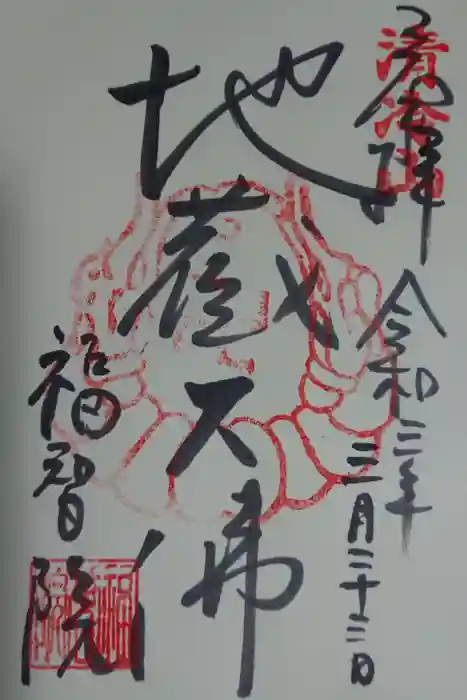 奉拝
令和三年
三月二十三日
地蔵大佛
福智院